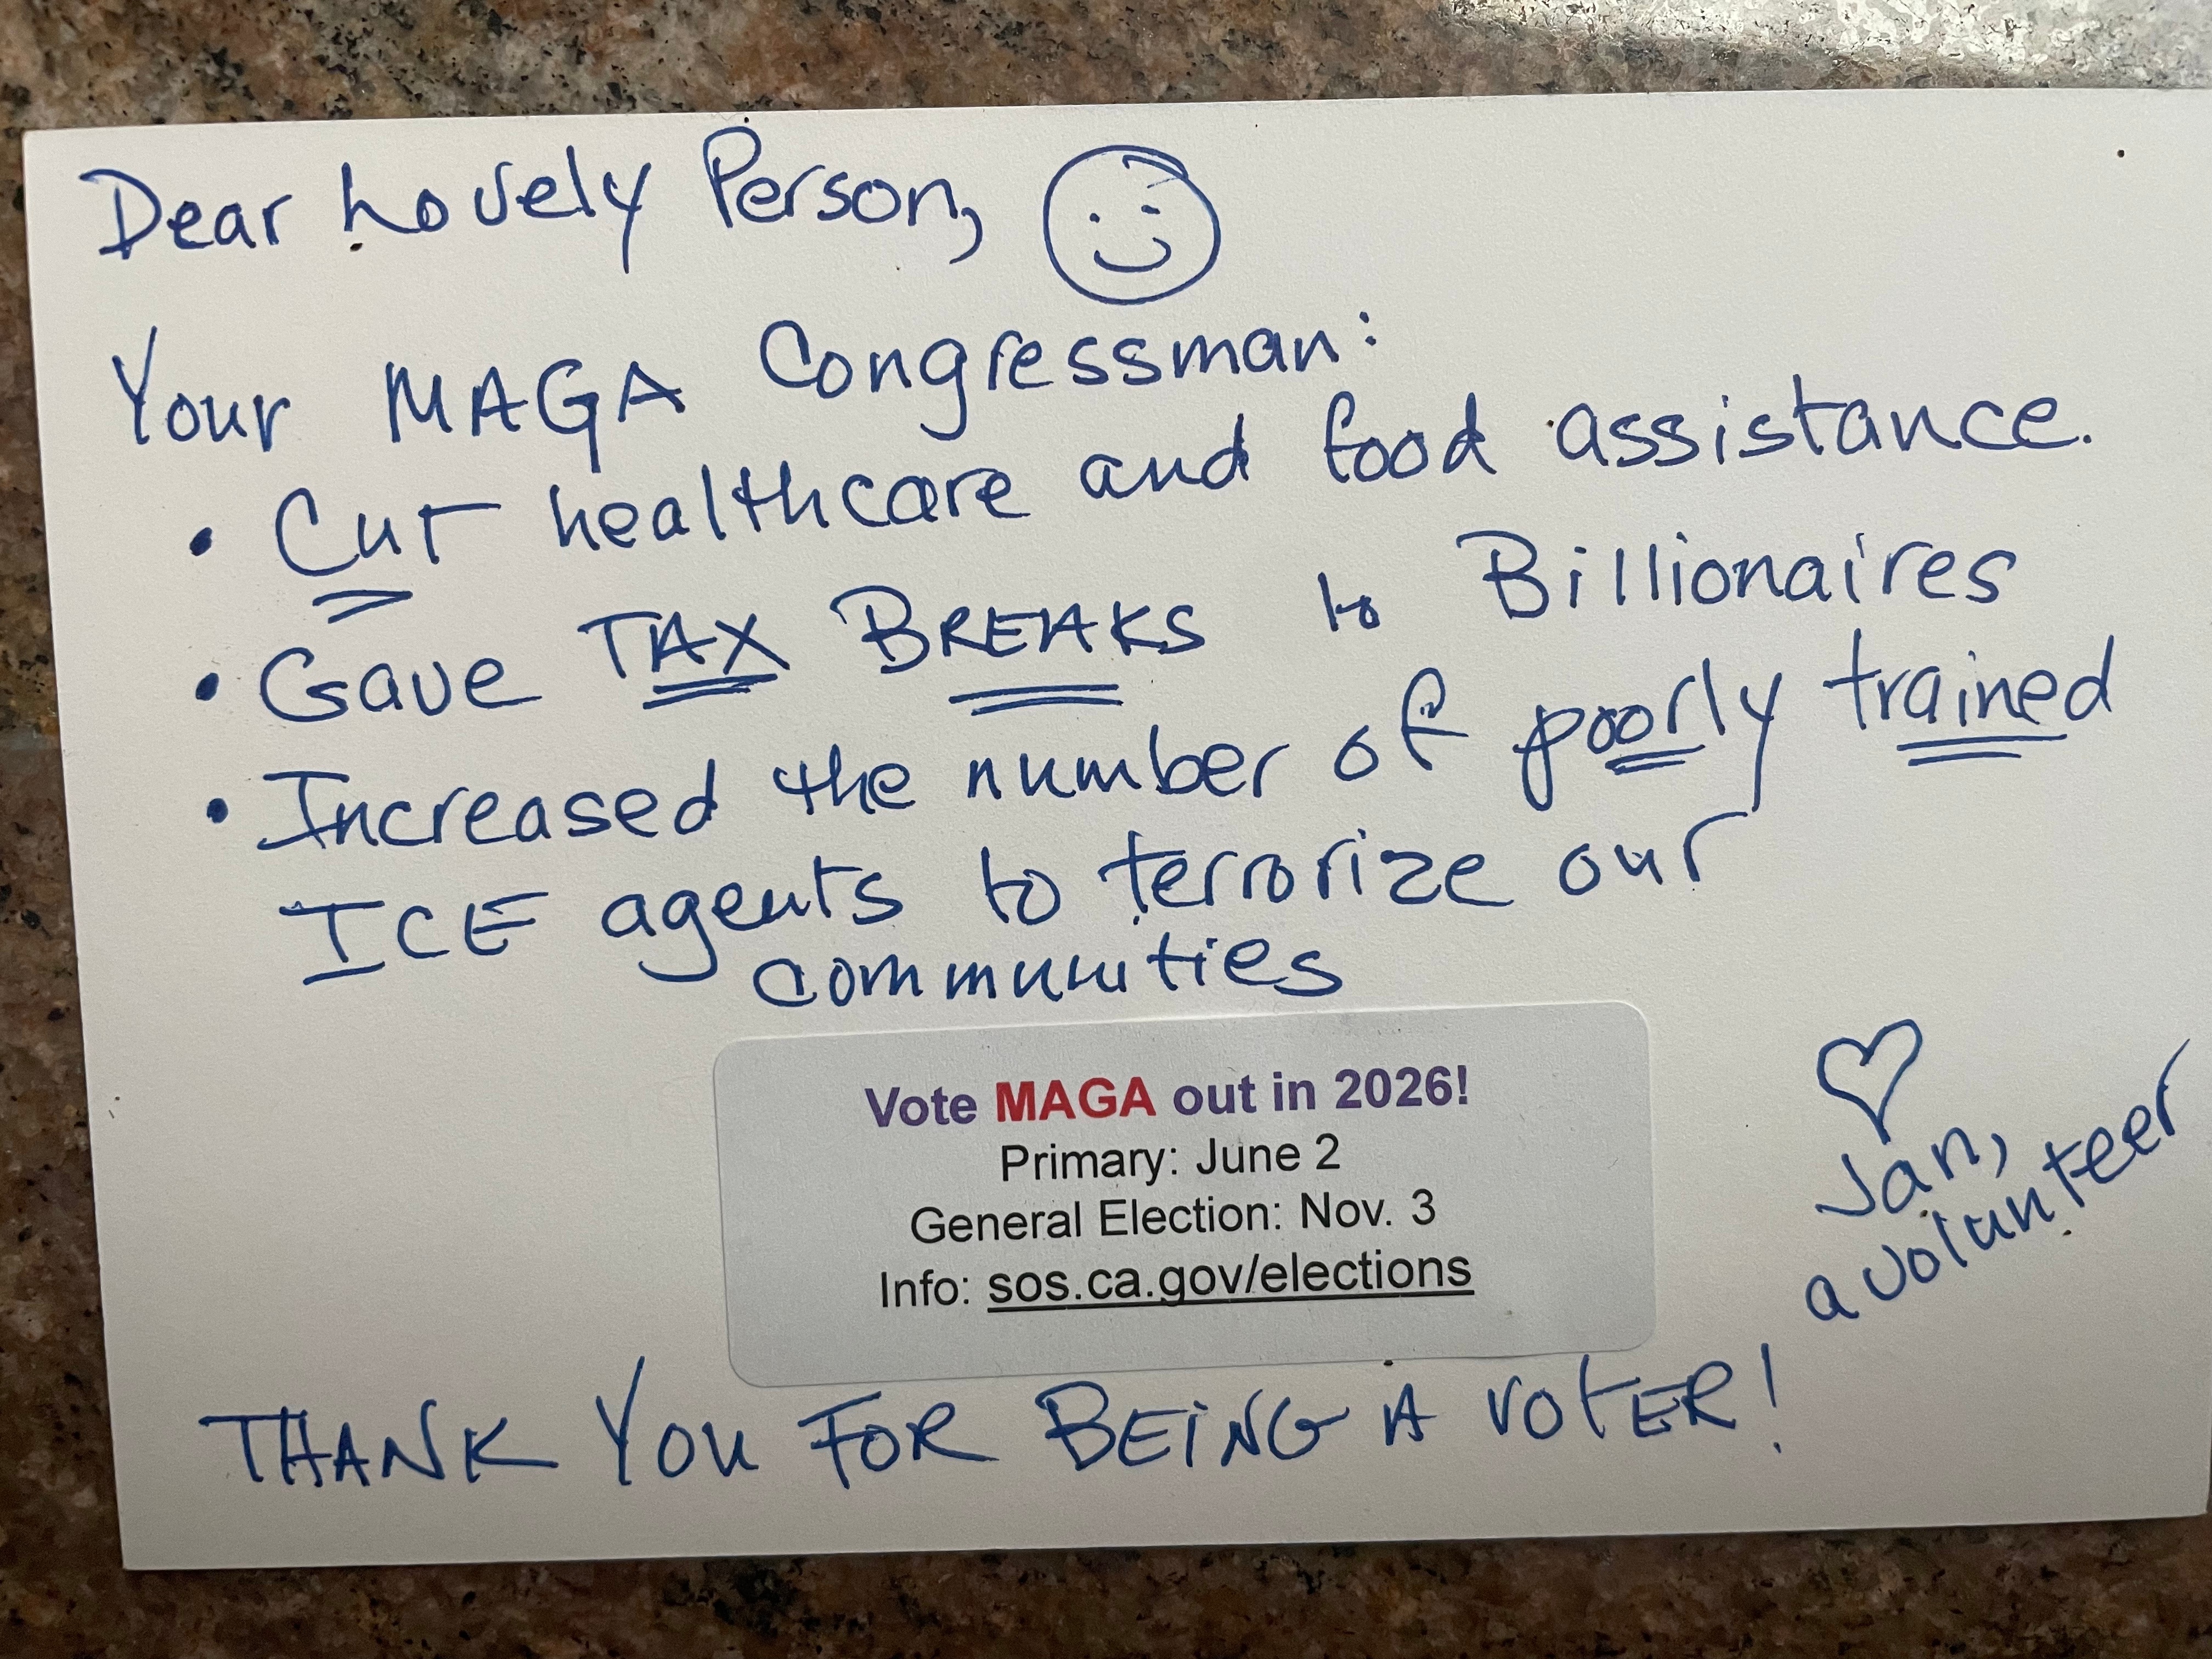 Dear Lovely Person,
Your MAGA Congressman:
• Cut healthcare and food assistance.
• Gave TAX BREAKS to Billionaires
• Increased the number of poorly trained
ICE agents to terrorize our
communities
Vote MAGA out in 2026!
Primary: June 2
General Election: Nov. 3
Info: sos.ca.gov/elections
Jan,
a volunteer
THANK YOU FOR BEING A VOTER!